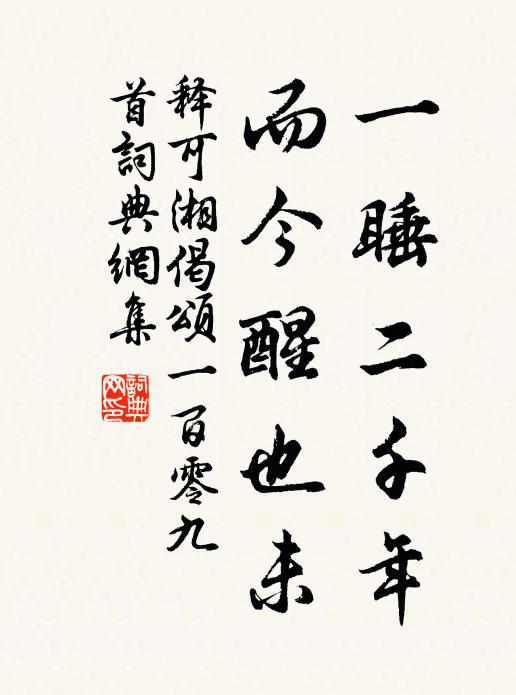 一睡二千年
而今醒也未
释可湘偈頌一百零九
首詞典網集
詞典
网印